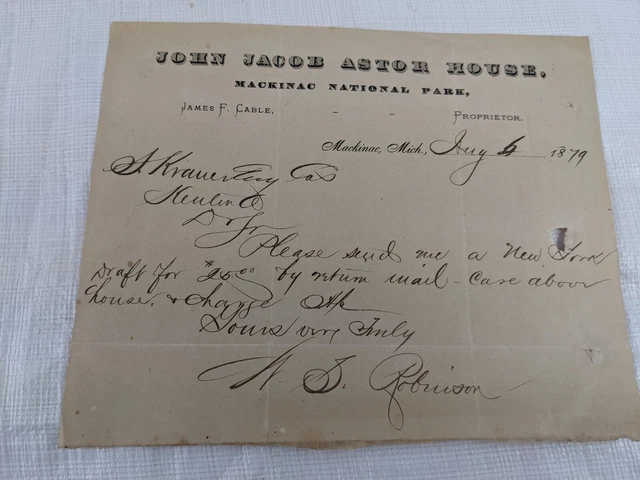 JOHN JACOB ASTOR HOUSE,
MACKINAC NATIONAL PARK,
JAMES F. CABLE, - - PROPRIETOR.
Mackinac, Mich., Aug 6 1879
Dr Sir
Please send me a New York
Draft for $25.00 by return mail - care above
house, & charge
Yours very Truly
W. S. Robinson